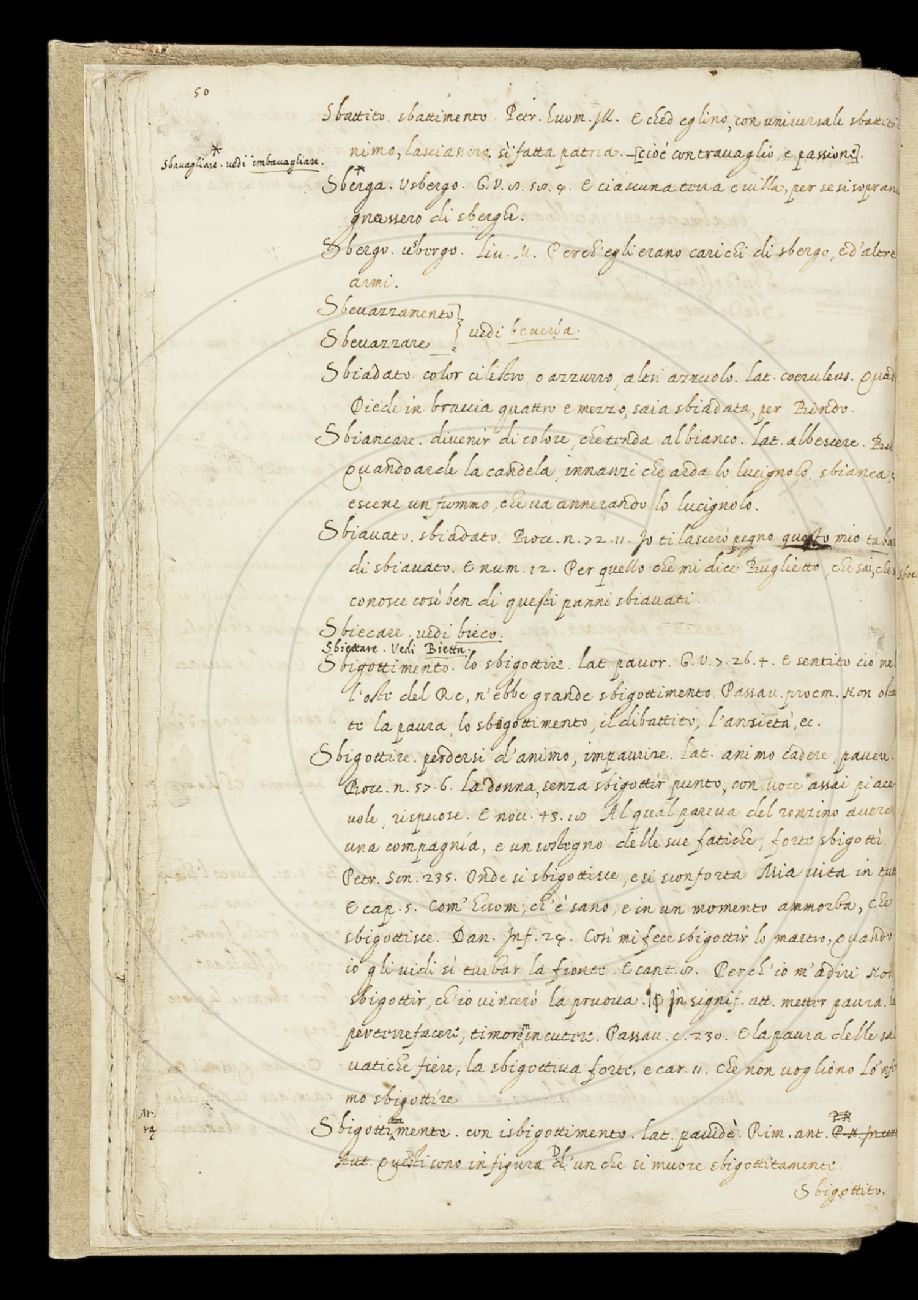 50
Sbattito. sbattimento. Petr. huom. ill. E ched eglino, con universale sbatti
nimo, lasciassero si fatta patria. [cioè con travaglio, e passione].
Sbavagliare. vedi imbavagliare.
Sberga. Usbergo. G. V. E ciascuna terra e villa, per se si sopran
gnassero di sberghe.
Sbergo. usbergo. Liv. M. Perch' egli erano carichi di sbergo, ed'altre
armi.
Sbevazzamento
Sbevazzare } vedi beveria.
Sbiadato. color cilestro, o azzurro, altri azzuolo. Lat. coeruleus. Quad
Diede in braccia quattro e mezzo, saia sbiadata, per Bindo.
Sbiancare. divenir di colore, che tenda al bianco. Lat. albescere.
Quando arde la candela, innanzi che arda lo lucignolo, sbianca,
escene un fummo, che va annerando lo lucignolo.
Sbiavato. sbiadato. Bocc. n. 72. 11. Io ti lascerò pegno questo mio taba
di sbiavato. E num. 12. Per quello che mi dice Buglietto, che sai, che
conosce così ben di questi panni sbiavati.
Sbiecare. vedi bieco.
Sbiettare. Vedi Bietta.
Sbigottimento. lo sbigottire. Lat. pavor. G. V. 7. 26. 4. E sentito ciò ne
l'oste del Re, n'ebbe grande sbigottimento. Passav. proem. Non ols
te la paura, lo sbigottimento, il dibattito, l'ansietà, ec.
Sbigottire. perdersi d'animo, impaurire. Lat. animo cadere, pavere.
Bocc. n. 57. 6. La donna, senza sbigottir punto, con voce assai piace
vole, rispuose. E nov. 43. Al qual pareva del ronzino avere
una compagnia, e un sostegno delle sue fatiche, forte sbigottì.
Petr. Son. 235. Onde si sbigottisce, e si sconforta Mia vita in tut
E cap. 5. Com' huom, ch'è sano, e in un momento ammorba, Che
sbigottisce. Dan. Inf. 24. Così mi fece sbigottir lo mastro, Quando
io gli vidi sì turbar la fronte. E cant. 8. Perch'io m'adiri Non
sbigottir, ch'io vincerò la pruova. In signif. att. metter paura.
perterrefacere, timorem incutere. Passav. c. 230. E la paura delle sa
vatiche fiere, la sbigottiva forte, e car. 11. Che non vogliono
mo sbigottire
Sbigottitamente. con isbigottimento. Lat. pavidè. Rim. ant.
Questi sono in figura d'un che si muore sbigottitamente.
Sbigottito.